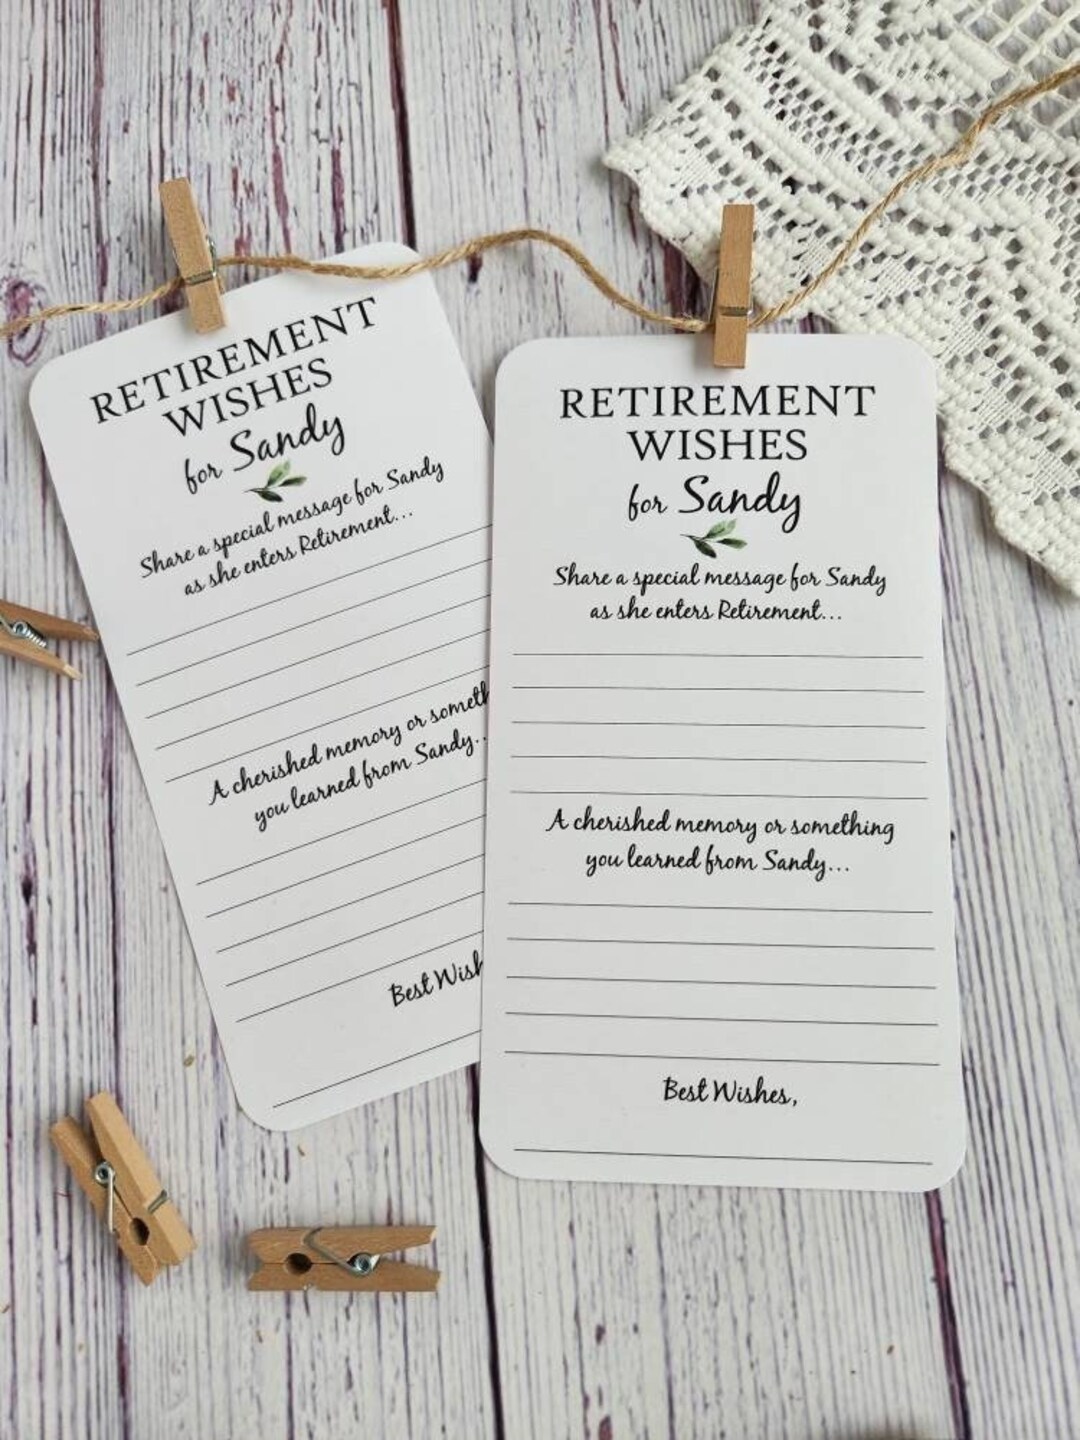 RETIREMENT
WISHES
for Sandy
Share a special message for Sandy
as she enters Retirement...
A cherished memory or someth
you learned from Sandy..
Best Wish
RETIREMENT
WISHES
for Sandy
Share a special message for Sandy
as she enters Retirement...
A cherished memory or something
you learned from Sandy...
Best Wishes,